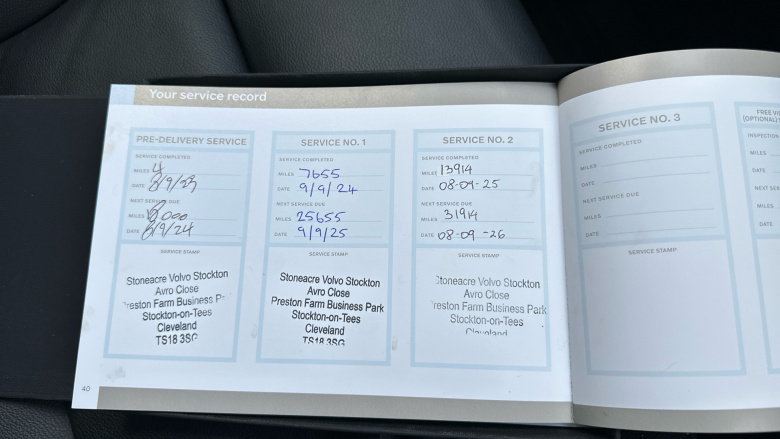 Your service record
PRE-DELIVERY SERVICE
SERVICE COMPLETED
MILES 4
DATE 8/9/23
NEXT SERVICE DUE
MILES
DATE 8/9/24
SERVICE STAMP
Stoneacre Volvo Stockton
Avro Close
Preston Farm Business P
Stockton-on-Tees
Cleveland
TS18 3SG
SERVICE NO. 1
SERVICE COMPLETED
MILES 7655
DATE 9/9/24
NEXT SERVICE DUE
MILES 25655
DATE 9/9/25
SERVICE STAMP
Stoneacre Volvo Stockton
Avro Close
Preston Farm Business Park
Stockton-on-Tees
Cleveland
TS18 3SG
SERVICE NO. 2
SERVICE COMPLETED
MILES 13914
DATE 08-09-25
NEXT SERVICE DUE
MILES 31914
DATE 08-09-26
SERVICE STAMP
Stoneacre Volvo Stockton
Avro Close
Preston Farm Business Park
Stockton-on-Tees
Cleveland
SERVICE NO. 3
SERVICE COMPLETED
MILES
DATE
NEXT SERVICE DUE
MILES
DATE
SERVICE STAMP
FREE VI
(OPTIONAL)
INSPECTION
MILES
DATE
NEXT SE
MILES
DATE
40